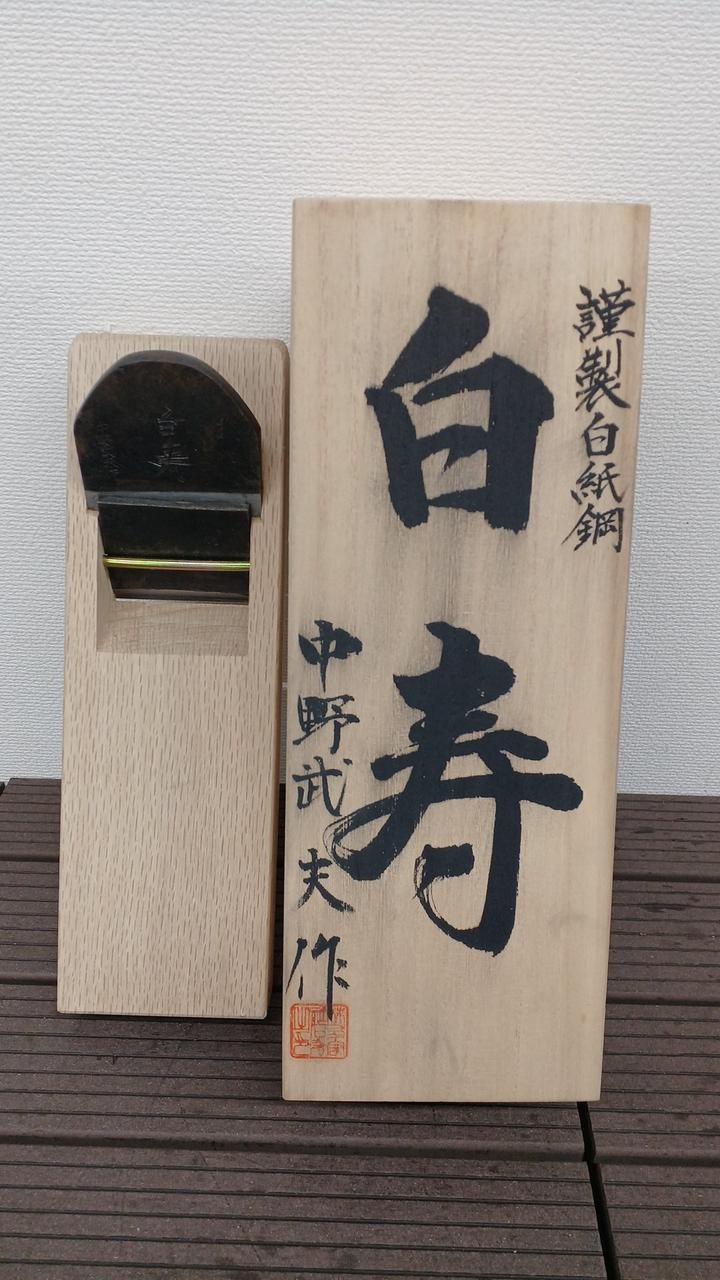 謹製白紙鋼
白寿
中野武夫作